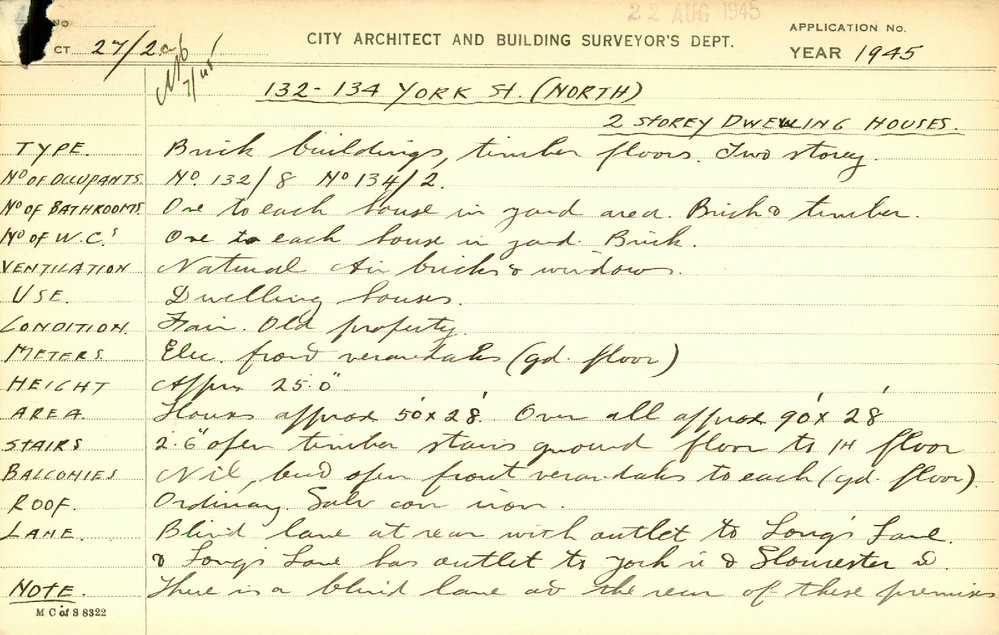 22 AUG 1945
NO
CT 27/2a
CITY ARCHITECT AND BUILDING SURVEYOR'S DEPT.
APPLICATION NO.
YEAR 1945
132-134 YORK ST. (NORTH)
2 STOREY DWELLING HOUSES.
TYPE. Brick buildings, timber floors. Two storey.
NO OF OCCUPANTS. No. 132/8 No 134/2.
NO OF BATHROOMS. One to each house in yard area. Brick & timber.
NO OF W.C.s One to each house in yard. Brick.
VENTILATION Natural Air bricks & windows.
USE. Dwelling houses.
CONDITION. Fair. Old property.
METERS. Elec. front verandahs (gd. floor)
HEIGHT Approx 25.0"
AREA. Houses approx 50' x 28'. Over all approx 90' x 28'
STAIRS 2.6" open timber stairs ground floor to 1st floor
BALCONIES Nil, but open front verandahs to each (gd. floor).
ROOF. Ordinary. Galv corr iron.
LANE. Blind lane at rear with outlet to Long's Lane.
& Long's Lane has outlet to York St & Gloucester St.
NOTE. There is a blind lane at the rear of these premises
M C of S 8322